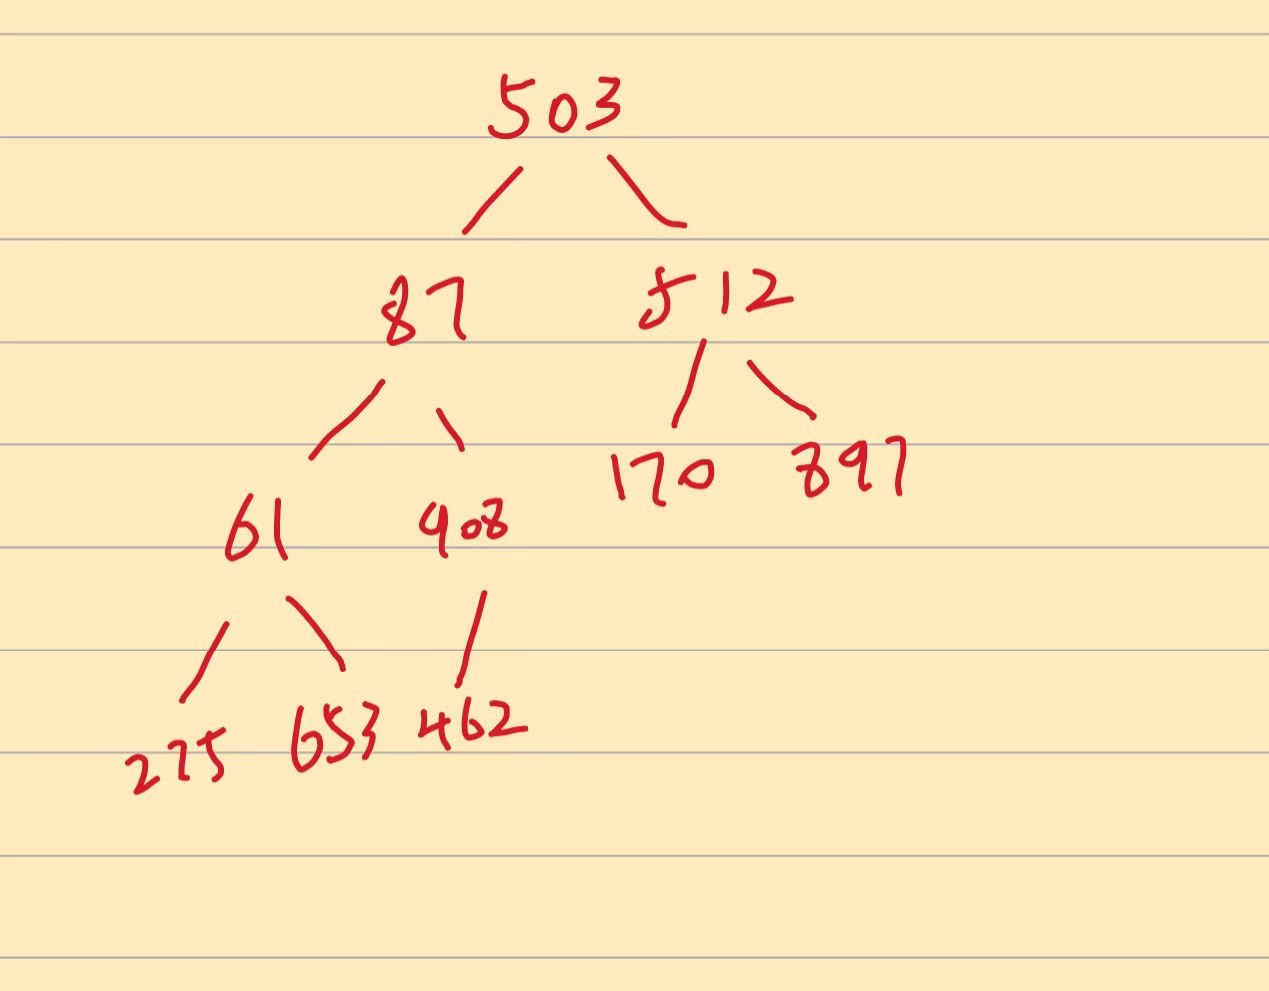 503
87 512
61 908 170 897
275 653 462